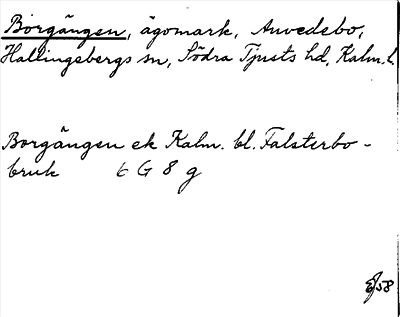 Borgängen, ägomark, Anvedebo,
Hallingebergs sn, Södra Tjusts hd, Kalm. l.
Borgängen ek Kalm. bl. Falsterbo-
bruk 6 G 8 g
58